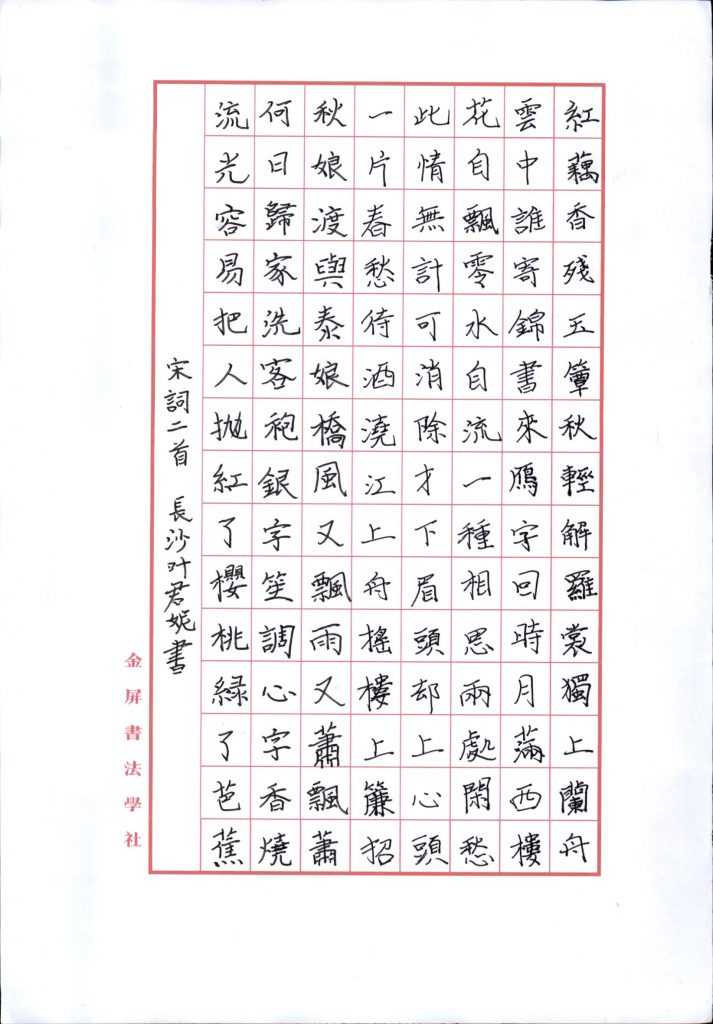 紅藕香殘玉簟秋輕解羅裳獨上蘭舟
雲中誰寄錦書來鴈字回時月滿西樓
花自飄零水自流一種相思兩處閑愁
此情無計可消除才下眉頭却上心頭
一片春愁待酒澆江上舟搖樓上簾招
秋娘渡與泰娘橋風又飄雨又蕭飄蕭
何日歸家洗客袍銀字笙調心字香燒
流光容易把人拋紅了櫻桃緑了芭蕉
宋詞二首 長沙叶君妮書
金屏書法學社